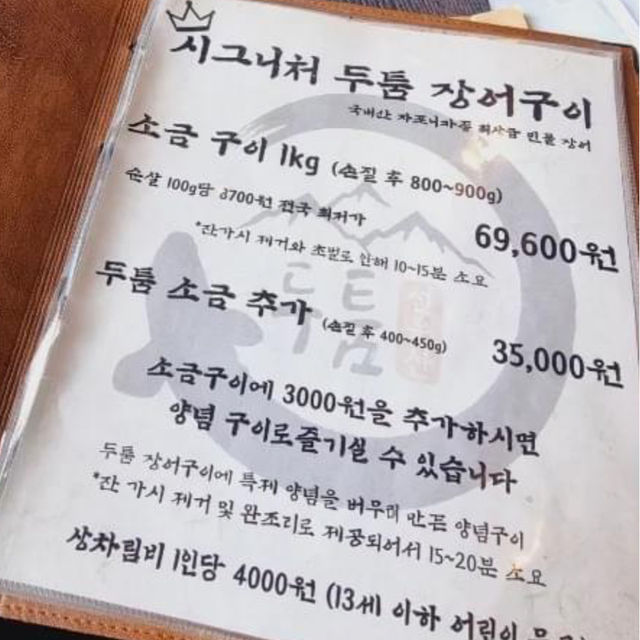 시그니처 두툼 장어구이
국내산 자포니카종 최상급 민물 장어
소금 구이 1kg (손질 후 800~900g)
순살 100g당 8700원 전국 최저가
69,600원
*잔가시 제거와 초벌로 인해 10~15분 소요
두툼 소금 추가 (손질 후 400~450g)
35,000원
두툼
소금구이에 3000원을 추가하시면
양념 구이로 즐기실 수 있습니다
두툼 장어구이에 특제 양념을 버무려 만든 양념구이
*잔 가시 제거 및 완조리로 제공되어서 15~20분 소요
상차림비 1인당 4000원 (13세 이하 어린이